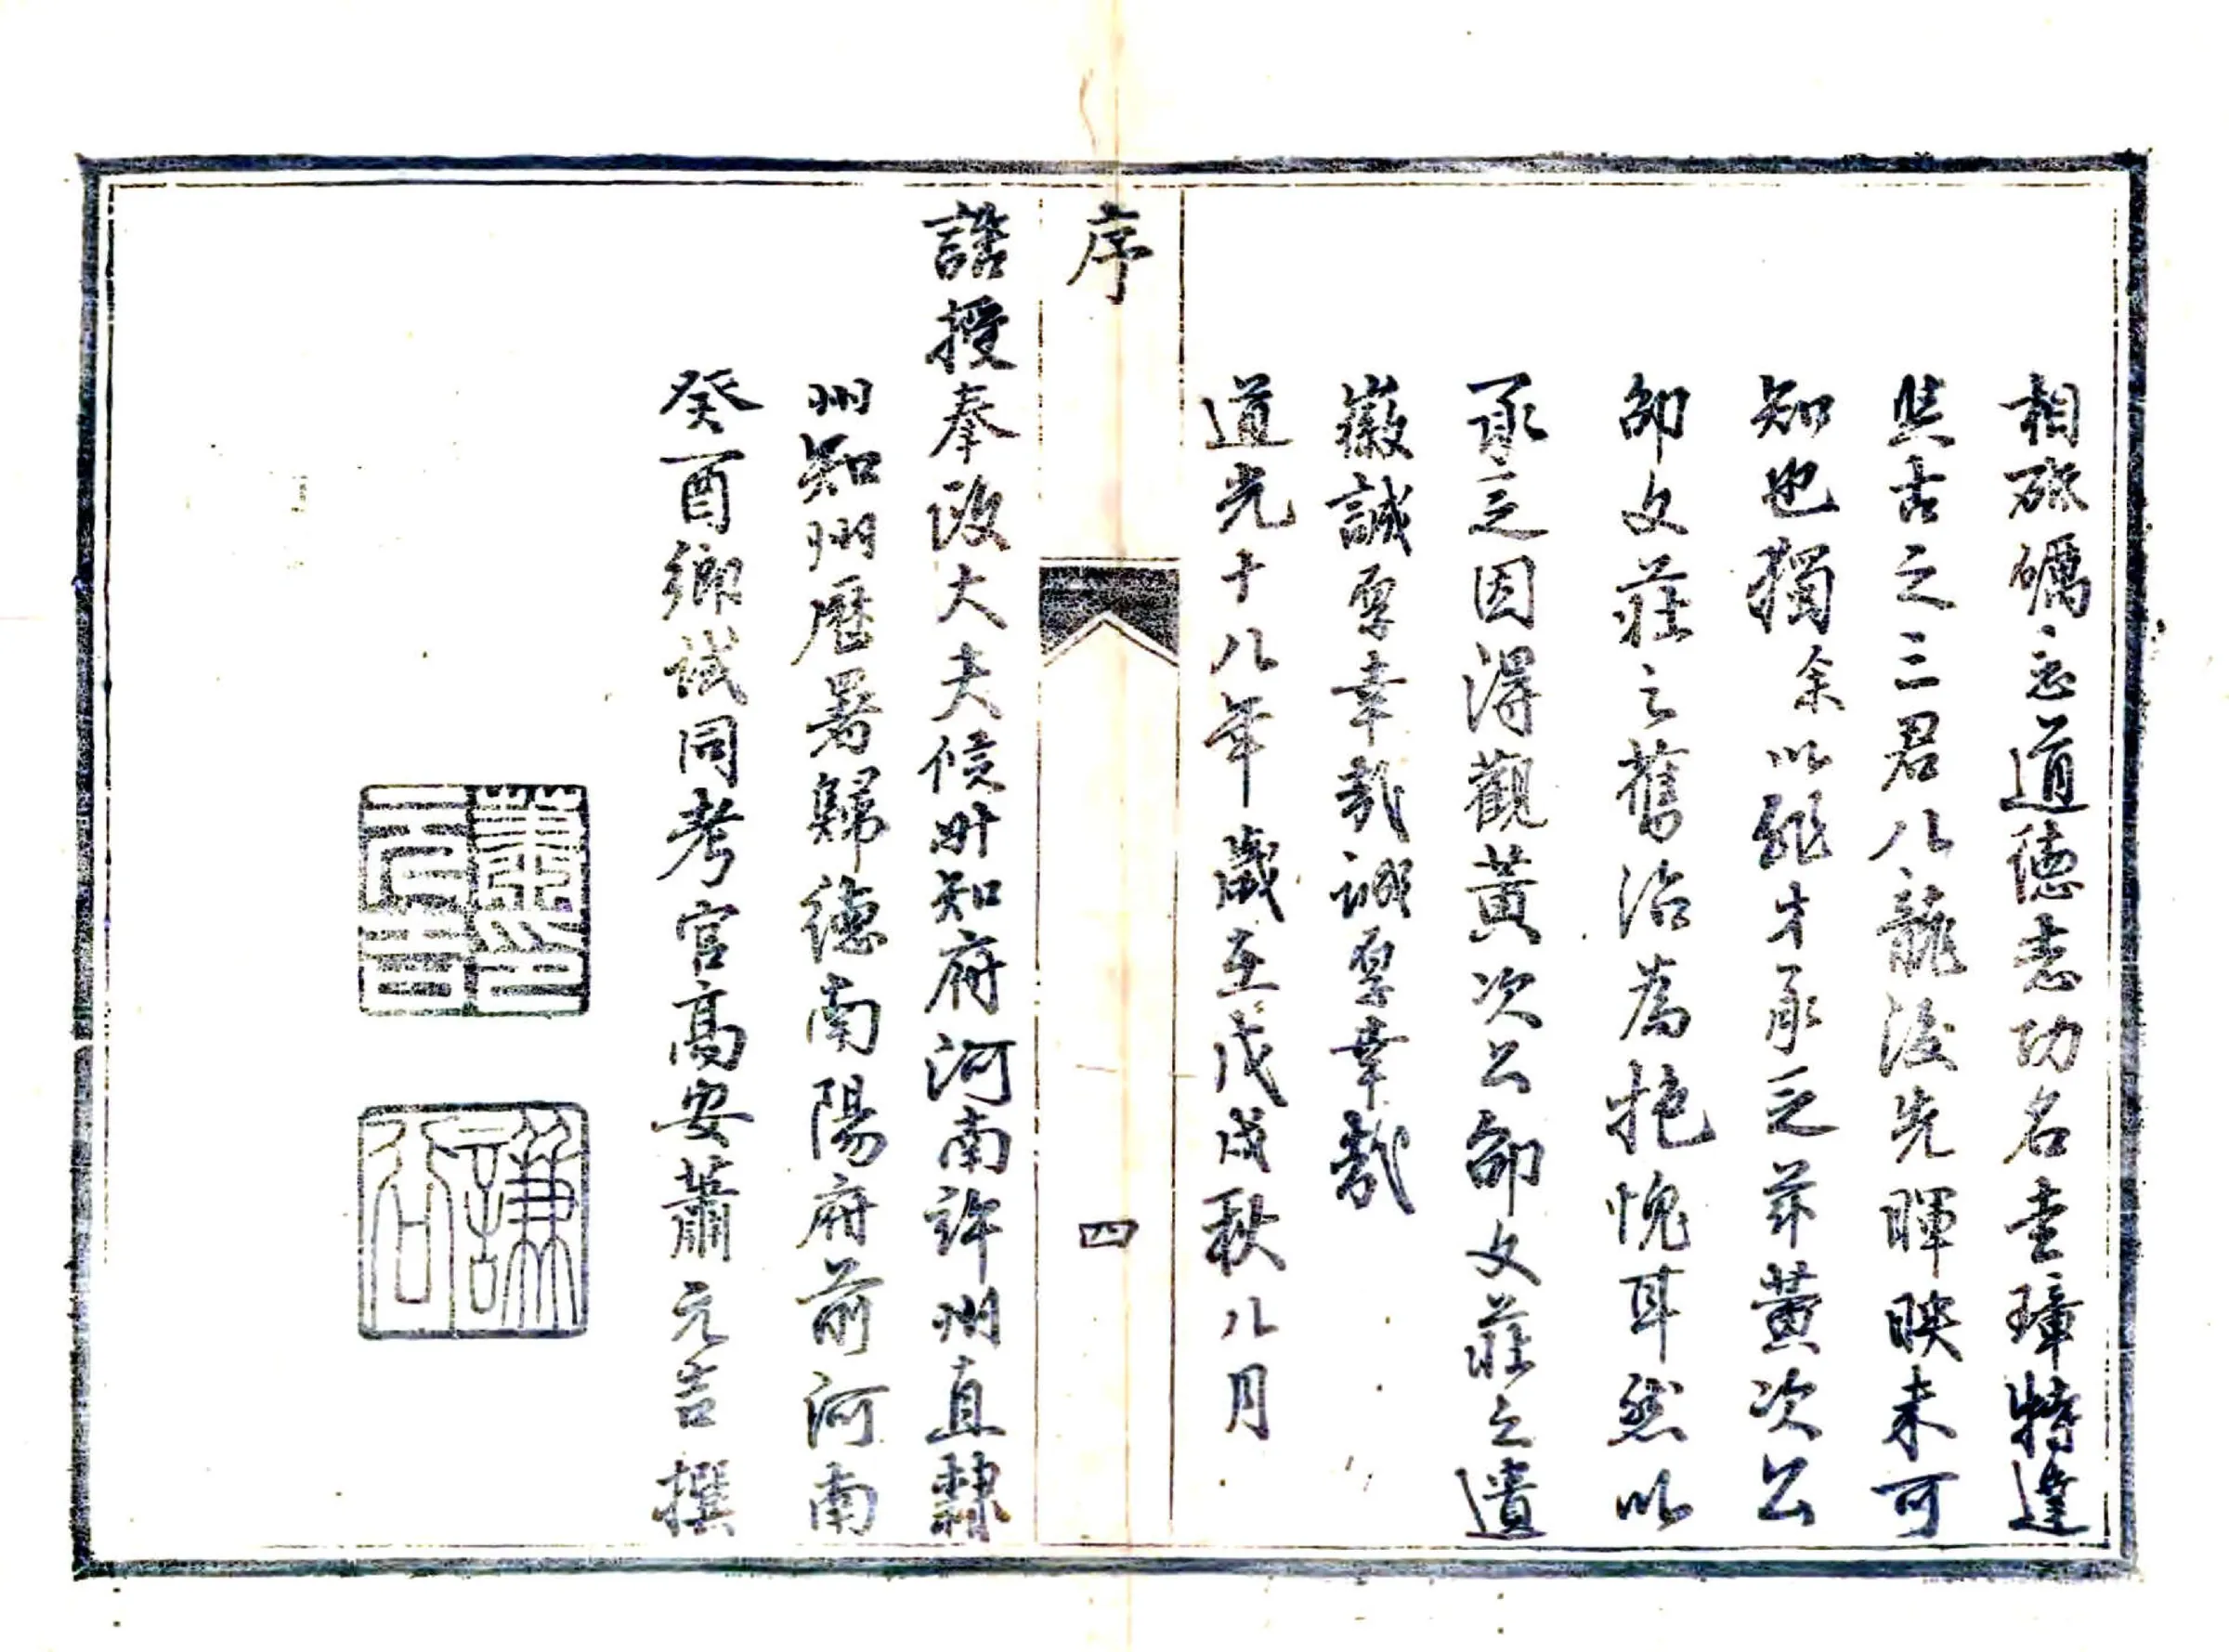 相砥礪意道德志功名圭璋特達
與古之三君八龍後先暉映未可
知也獨余以非才承乏茲黃次公
邵文莊之舊治為抱愧耳然以
承乏因得觀黃次公邵文莊之遺
徽誠厚幸哉誠厚幸哉
道光十八年歲在戊戌秋八月
序
四
誥授奉政大夫候升知府河南許州直隸
州知州歷署歸德南陽府前河南
癸酉鄉試同考官高安蕭元吉撰
蕭印元吉
謙谷